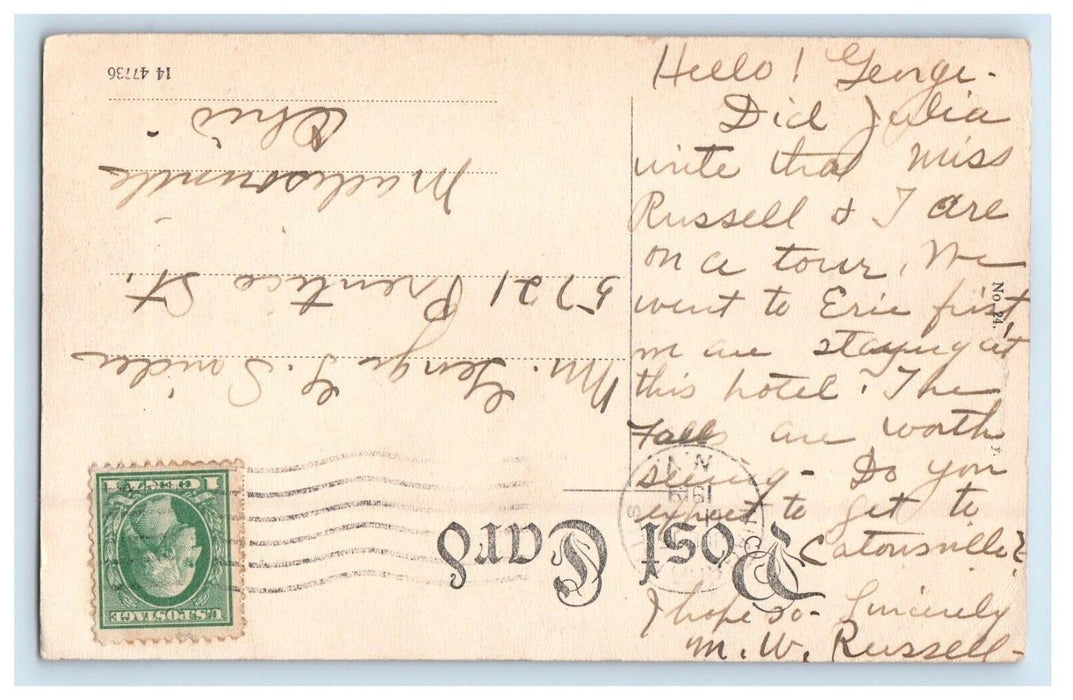 Hello! George.
Did Julia
write that Miss
Russell & I are
on a tour. We
went to Erie first
are staying at
this hotel. The
Falls are worth
seeing - Do you
expect to get to
Catonsville?
I hope so - Sincerely
M. W. Russell -
Post Card
No. 24.
Mr. George G.
5721 Prentice St.
Madisonville
Ohio.
14 47736
U.S. POSTAGE
1 CENT 1
N.Y.